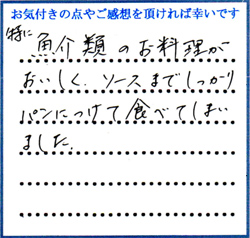 お気付きの点やご感想を頂ければ幸いです
特に魚介類のお料理が
おいしく、ソースまでしっかり
パンにつけて食べてしまい
ました。